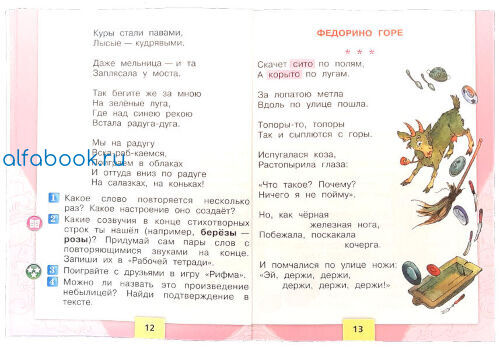 Куры стали павами,
Лысые — кудрявыми.
Даже мельница — и та
Заплясала у моста.
Так бегите же за мною
На зелёные луга,
Где над синею рекою
Встала радуга-дуга.
Мы на радугу
вска-раб-каемся,
Поиграем в облаках
И оттуда вниз по радуге
На салазках, на коньках!
alfabook.ru
1 Какое слово повторяется несколько
раз? Какое настроение оно создаёт?
2 Какие созвучия в конце стихотворных
строк ты нашёл (например, берёзы —
розы)? Придумай сам пары слов с
повторяющимися звуками на конце.
Запиши их в «Рабочей тетради».
3 Поиграйте с друзьями в игру «Рифма».
4 Можно ли назвать это произведение
небылицей? Найди подтверждение в
тексте.
12
ФЕДОРИНО ГОРЕ
* * *
Скачет сито по полям,
А корыто по лугам.
За лопатою метла
Вдоль по улице пошла.
Топоры-то, топоры
Так и сыплются с горы.
Испугалася коза,
Растопырила глаза:
«Что такое? Почему?
Ничего я не пойму».
Но, как чёрная
железная нога,
Побежала, поскакала
кочерга.
И помчалися по улице ножи:
«Эй, держи, держи,
держи, держи, держи!»
13